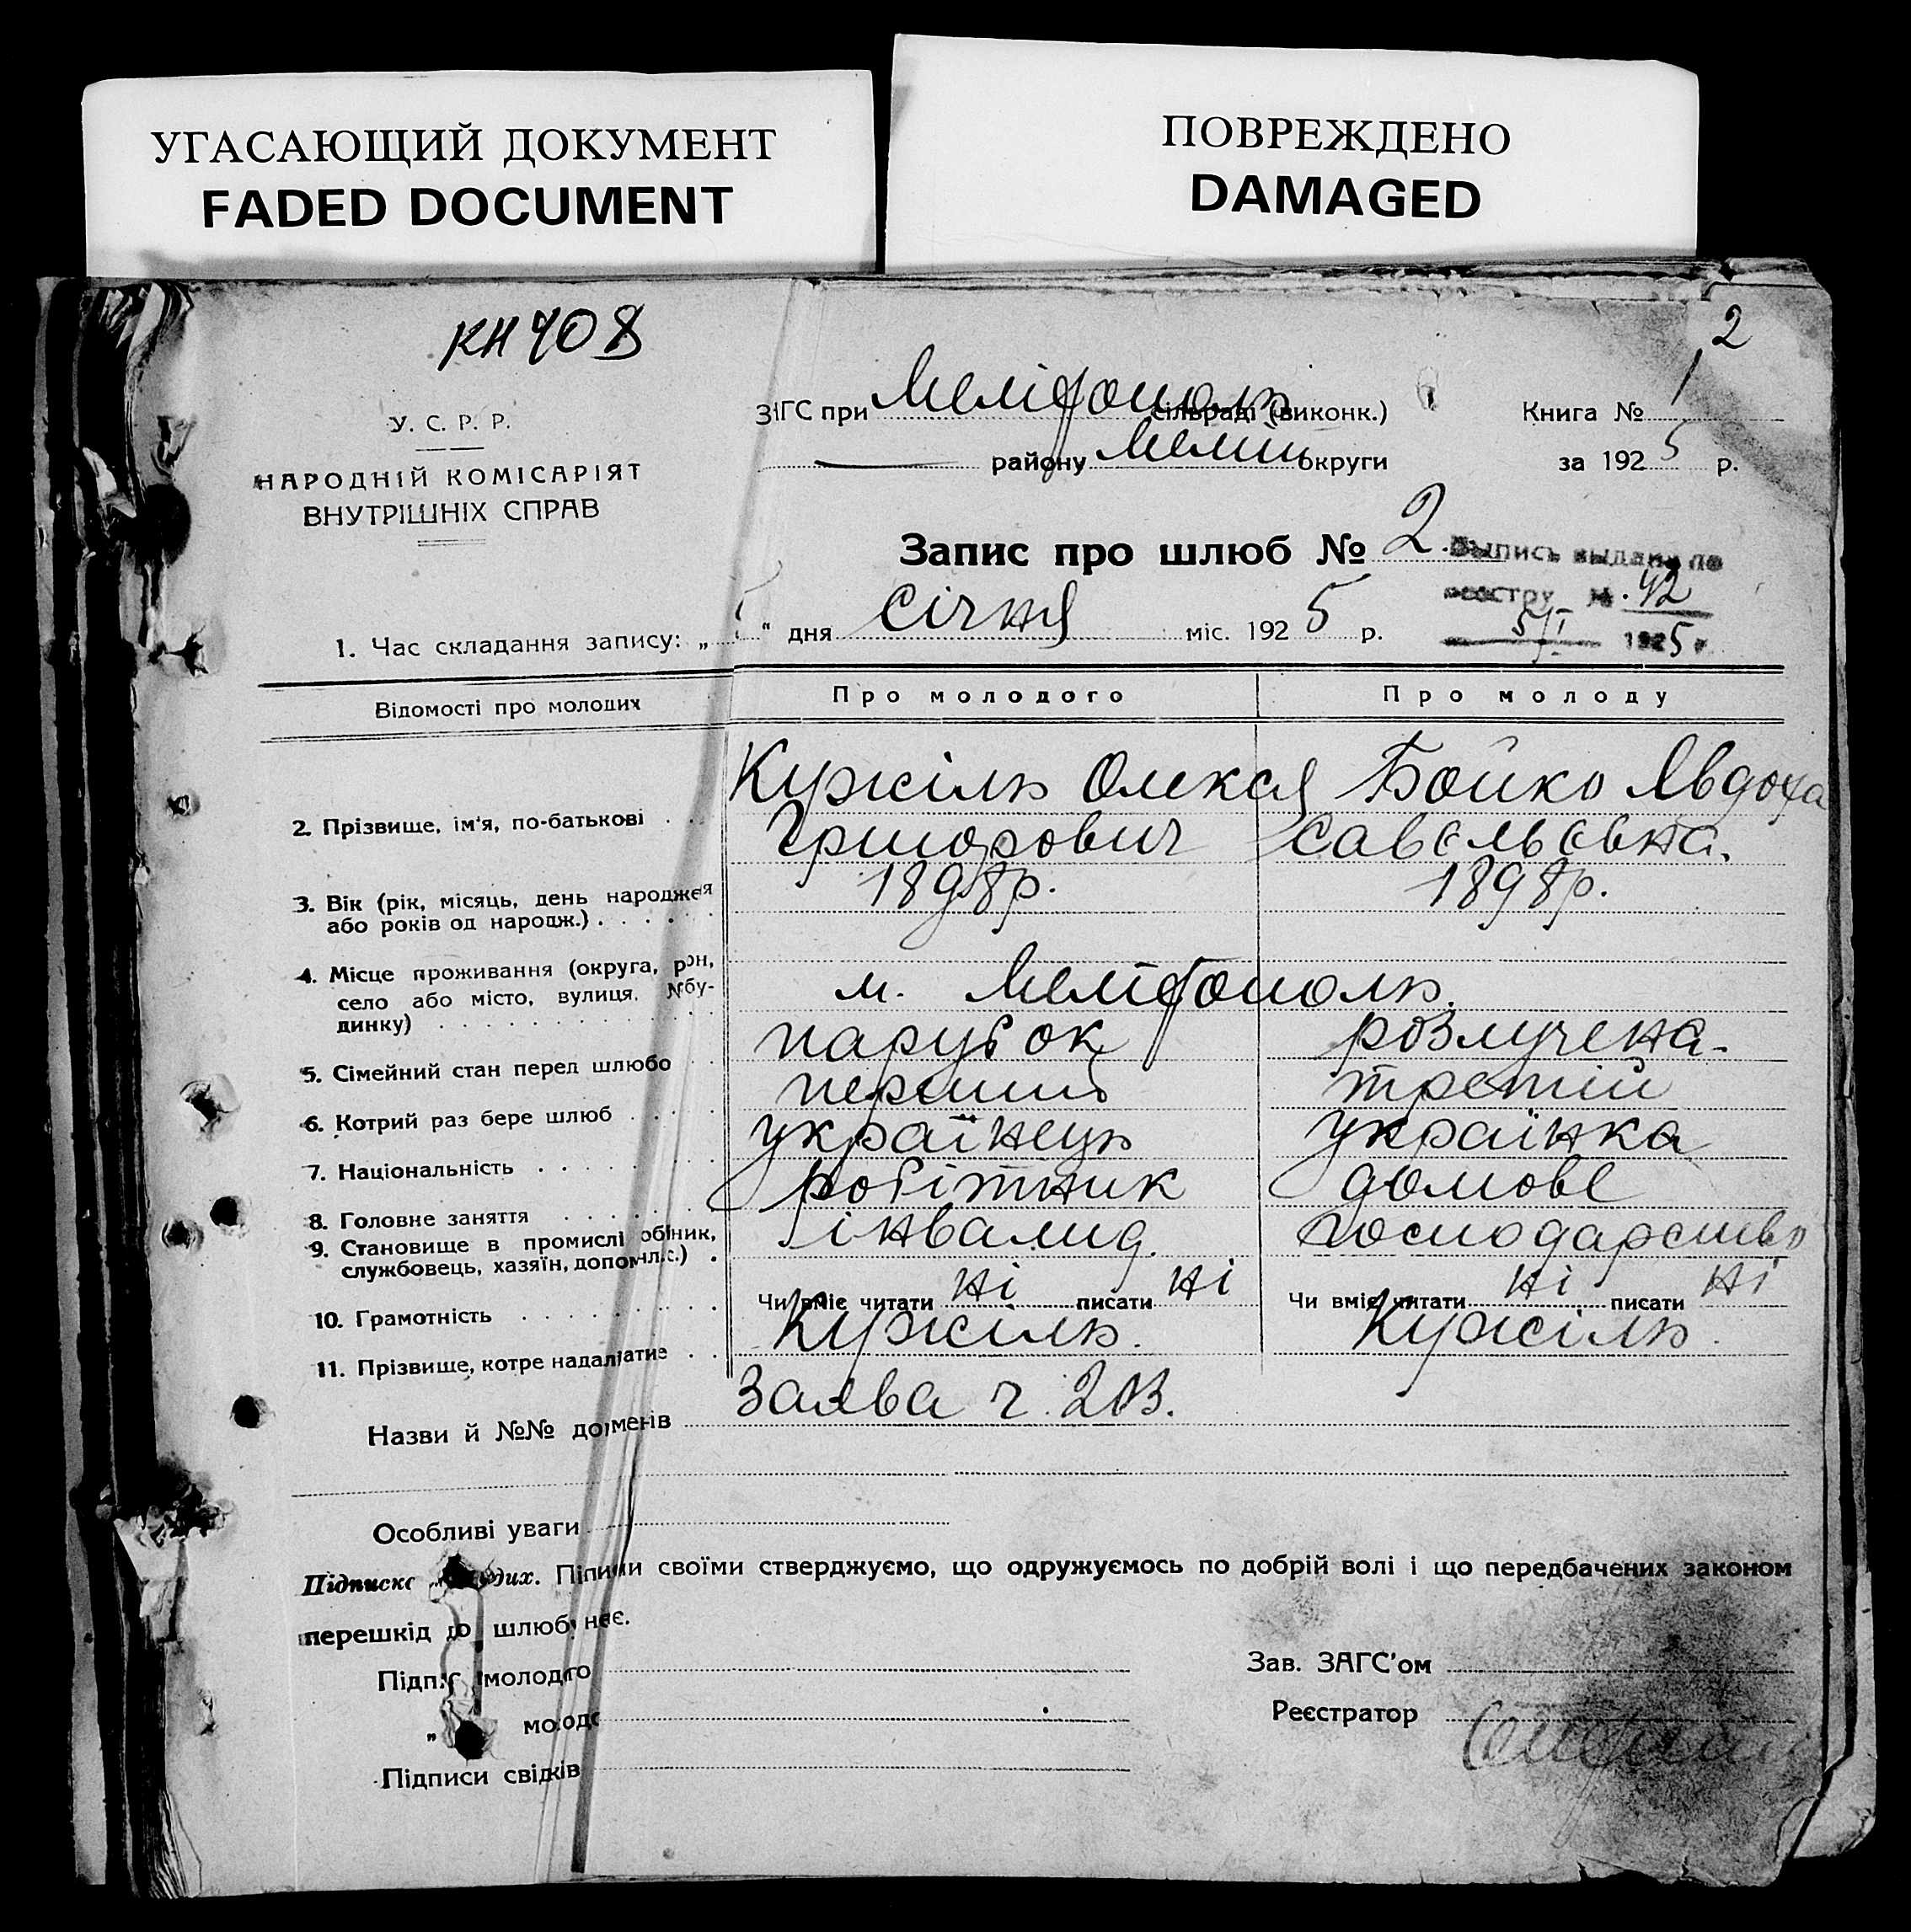 УГАСАЮЩИЙ ДОКУМЕНТ
FADED DOCUMENT
ПОВРЕЖДЕНО
DAMAGED
2
КН 408
У. С. Р. Р.
НАРОДНІЙ КОМІСАРІЯТ
ВНУТРІШНІХ СПРАВ
ЗАГС при Мелітополь сільраді (виконк.)
району Меліт округи
Книга № 1
за 1925 р.
Запис про шлюб № 2.
Выпись выдана по
реестру №. 42
5/I 1925 г.
1. Час складання запису: „5“ дня Січня міс. 1925 р.
Відомості про молодих
Про молодого
Про молоду
2. Прізвище, ім'я, по-батькові
Кужіль Олекса Бойко Явдоха
Григорович Савєльєвна.
3. Вік (рік, місяць, день народження
або років од народж.)
1898р. 1898р.
4. Місце проживання (округа, район,
село або місто, вулиця, № бу-
динку)
м. Мелітополь.
5. Сімейний стан перед шлюбом
парубок розлучена.
6. Котрий раз бере шлюб
перший третій
7. Національність
українець українка
8. Головне заняття
робітник домове
9. Становище в промислі робітник,
службовець, хазяїн, допом.
інвалид. господарство
10. Грамотність
Чи вміє читати Ні писати Ні Чи вміє читати Ні писати Ні
11. Прізвище, котре надалі матиме
Кужіль. Кужіль.
Назви й №№ документів Заява ч.
Особливі уваги
Підписка молодих. Підписами своїми стверджуємо, що одружуємось по добрій волі і що передбачених законом
перешкід до шлюбу немає.
Підпис молодого
„ молодої
Підписи свідків
Зав. ЗАГС'ом
Реєстратор